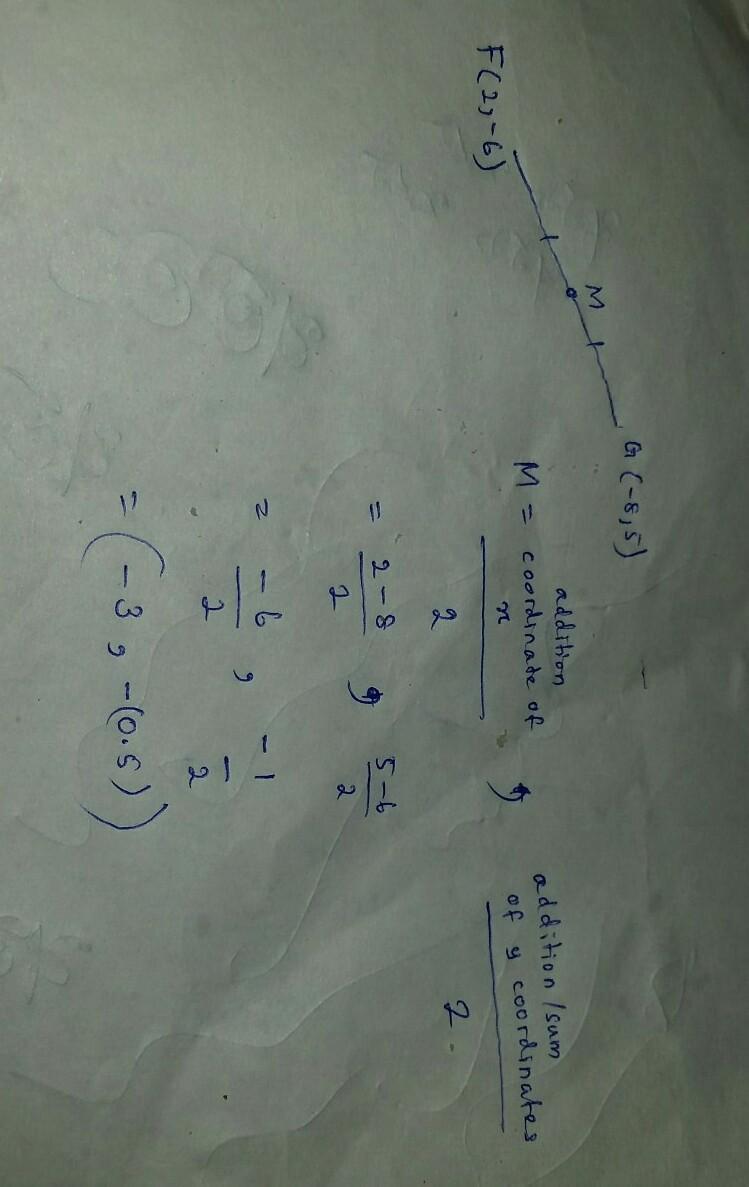 F(2,-6)
M
G (-8,5)
addition
M = coordinate of , addition/sum
x of y coordinates
2 2
= 2-8 , 5-6
2 2
= -6 , -1
2 2
= (-3, -(0.5))